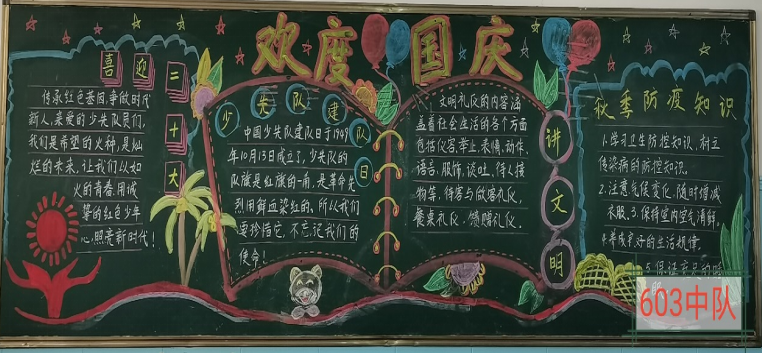 欢度国庆
喜迎二十大
传承红色基因,争做时代
新人,亲爱的少先队员们,
我们是希望的火种,是灿
烂的未来,让我们以如
火的青春,用诚
挚的红色少年
心,照亮新时代!
少先队建队日
中国少先队建队日于1949
年10月13日成立了,少先队的
队旗是红旗的一角,是革命先
烈用鲜血染红的,所以我们
要珍惜它,不忘记我们的
使命!
讲文明
文明礼仪的内容涵
盖着社会生活的各个方面
包括仪容、举止、表情、动作、
语言、服饰、谈吐、待人接
物等,待客与做客礼仪,
餐桌礼仪、馈赠礼仪。
秋季防疫知识
1.学习卫生防控知识,树立
传染病的防控知识。
2.注意气候变化,随时增减
衣服。3.保持室内空气清新。
4.养成良好的生活规律。
5.保证充足的睡
603中队